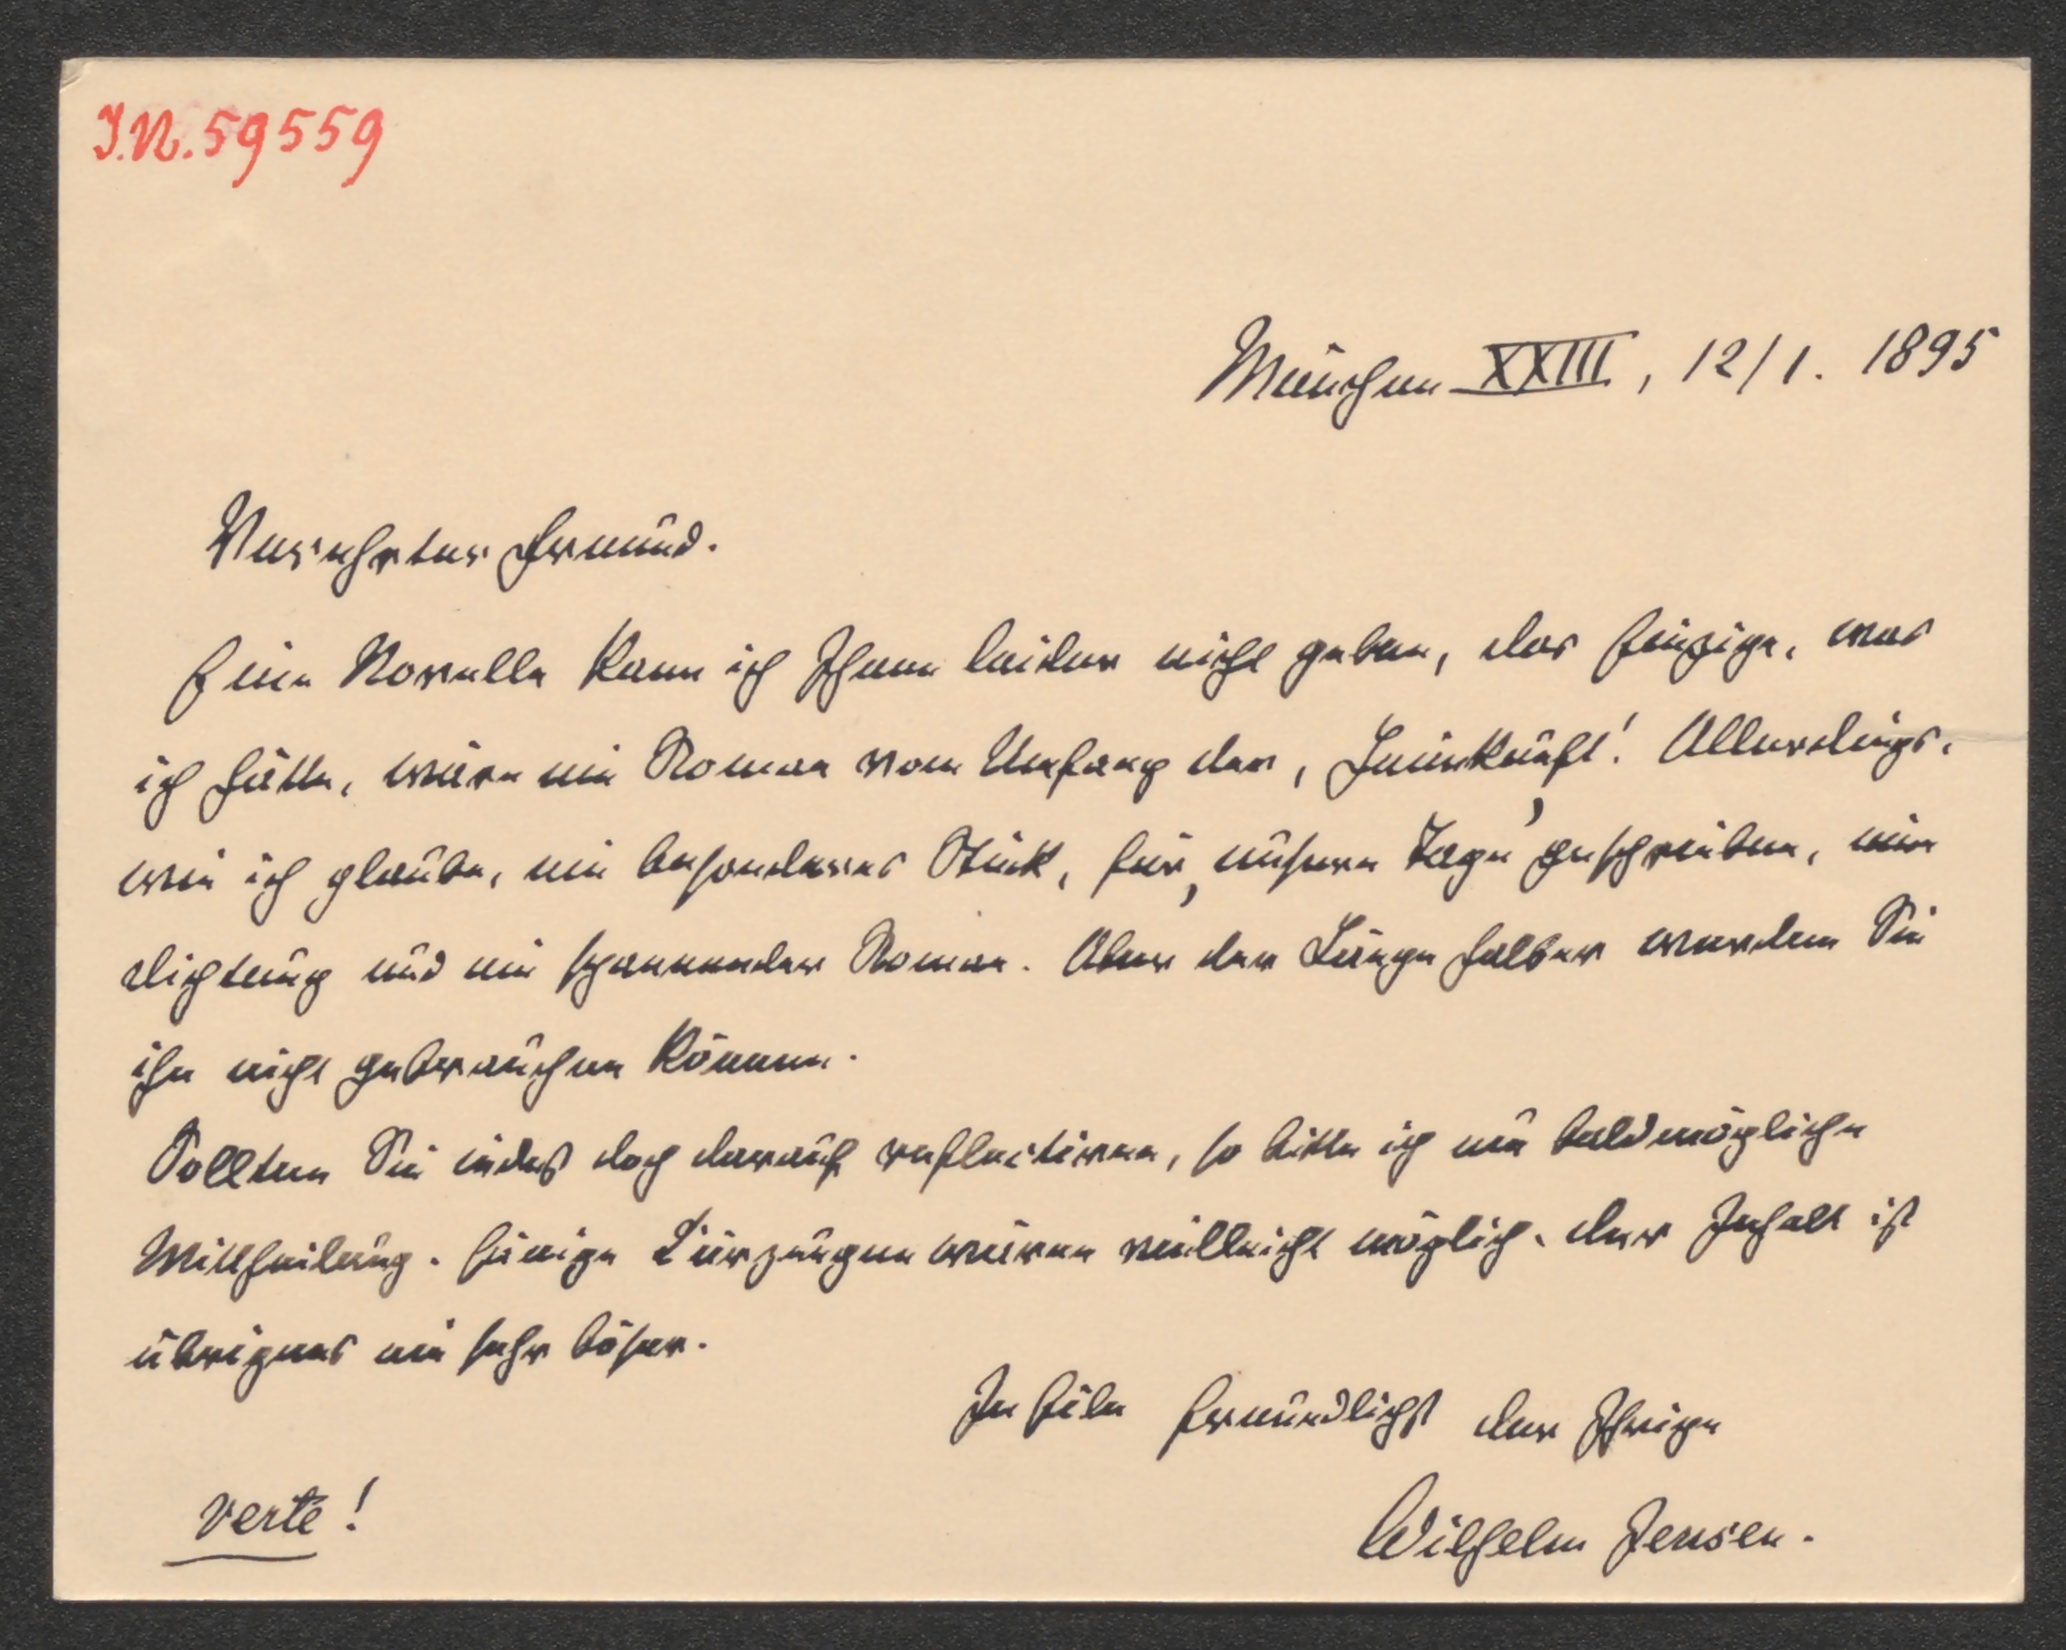 J.N. 59559
München XXIII, 12/1. 1895
Verehrter Freund.
Eine Novelle kann ich Ihnen leider nicht geben, das Einzige, was
ich hätte, wäre ein Roman vom Umfang der, Heimkunft'. Allerdings,
wie ich glaube, ein besonderes Stück, für, unsere Tage' geschrieben, eine
Dichtung und ein spannender Roman. Aber der Länge halber werden Sie
ihn nicht gebrauchen können.
Sollten Sie indeß doch darauf reflectiren, so bitte ich um baldmögliche
Mittheilung. Einige Kürzungen wären vielleicht möglich. Der Inhalt ist
übrigens ein sehr böser.
In Eile freundlichst der Ihrige
Wilhelm Jensen.
verte!